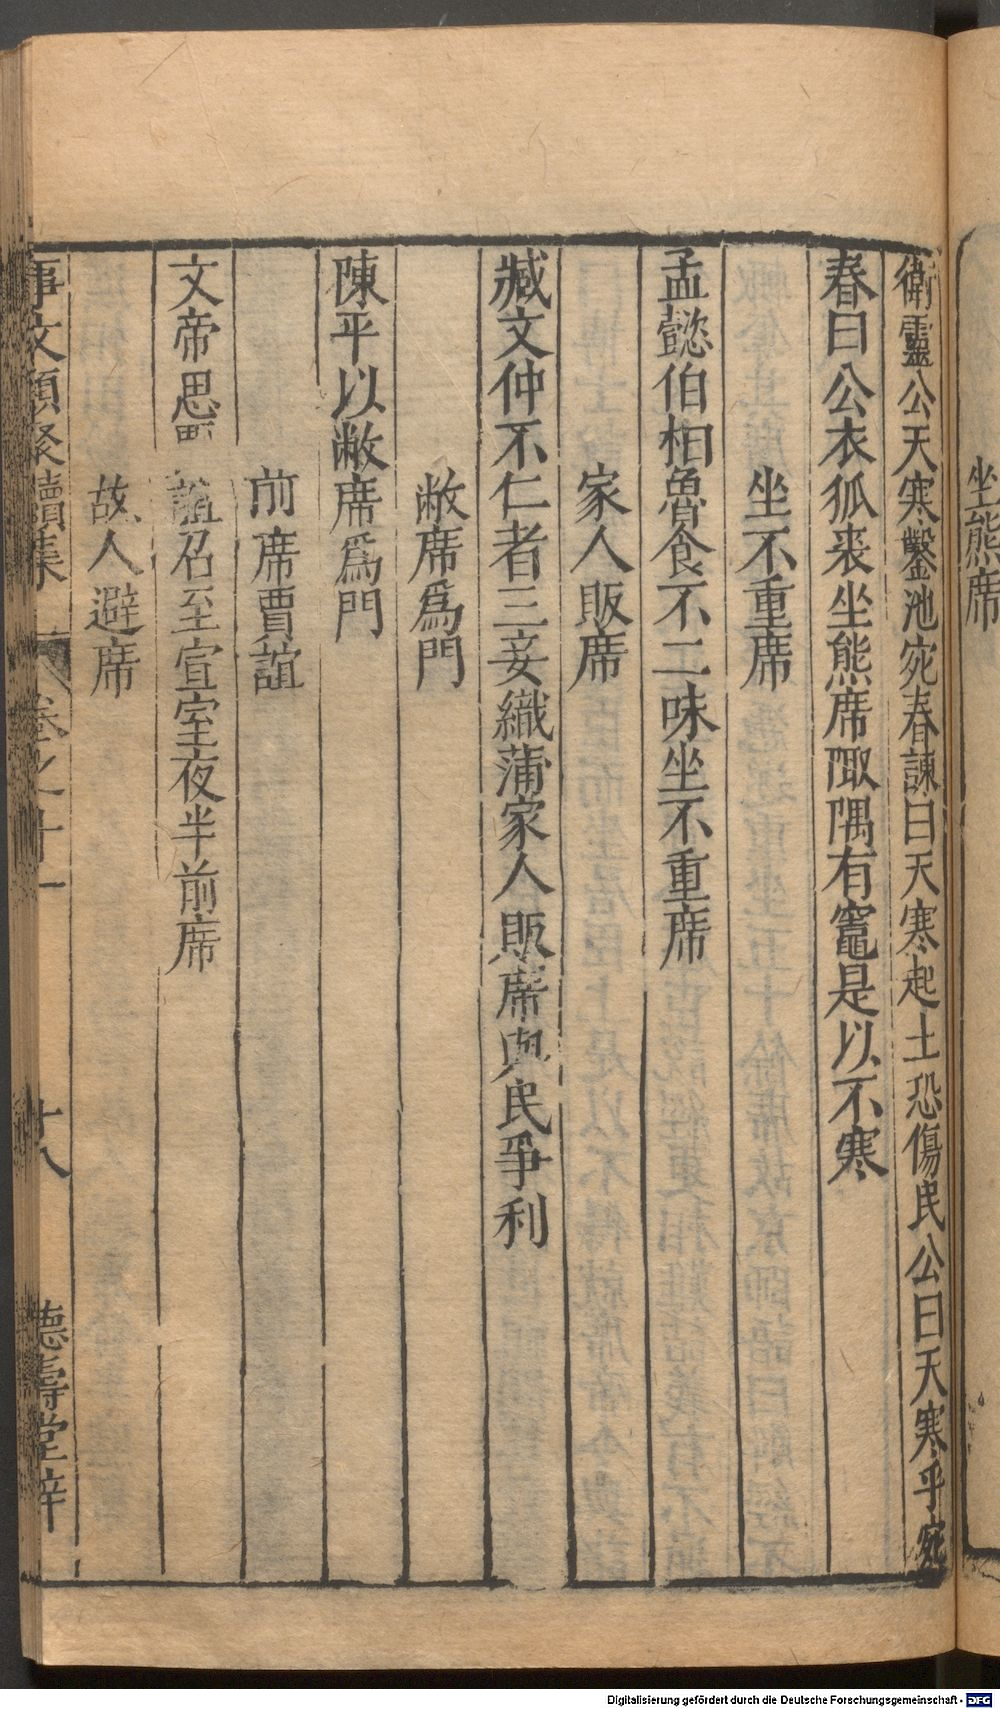 坐熊席
衛靈公天寒鑿池宛春諫曰天寒起土恐傷民公曰天寒乎宛
春曰公衣狐裘坐熊席陬隅有竈是以不寒
坐不重席
孟懿伯相魯食不二味坐不重席
家人販席
臧文仲不仁者三妾織蒲家人販席與民爭利
敝席爲門
陳平以敝席爲門
前席賈誼
文帝思賈誼召至宣室夜半前席
故人避席
事文類聚續集 卷之十一 十八 德壽堂梓
Digitalisierung gefördert durch die Deutsche Forschungsgemeinschaft - DFG